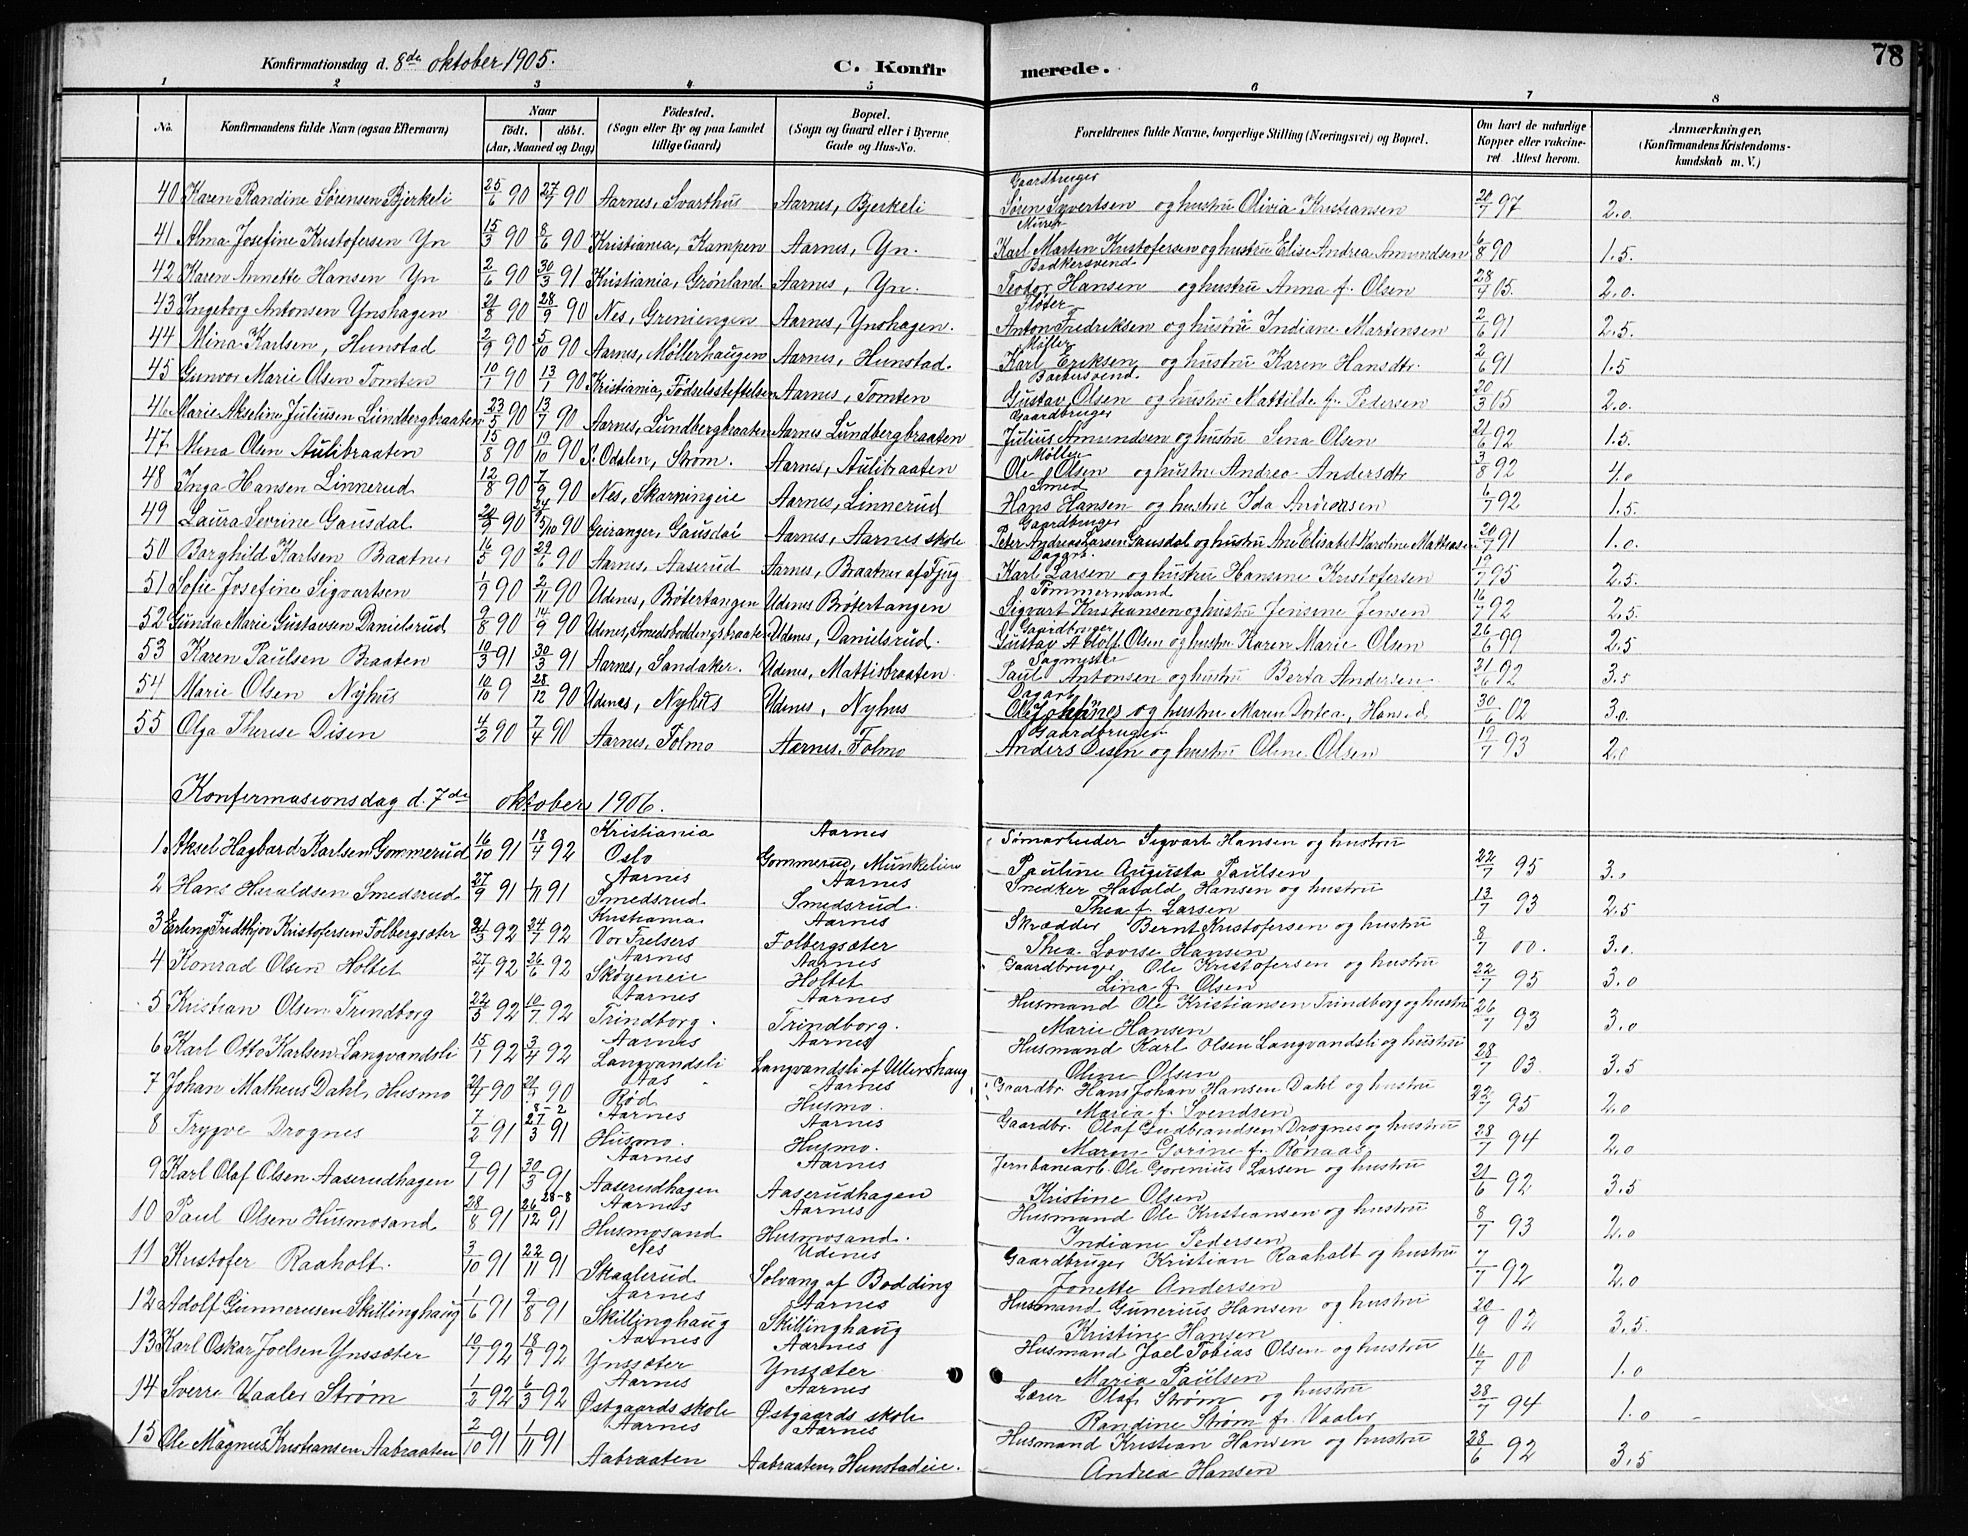 78
Konfirmationsdag d. 8de oktober 1905. C. Konfirmerede.
1 2 3 4 5 6 7 8
No. Konfirmandens fulde Navn (ogsaa Efternavn) Naar födt. döbt. (Aar, Maaned og Dag) Födested. (Sogn eller By og paa Landet tillige Gaard) Bopæl. (Sogn og Gaard eller i Byerne Gade og Hus-No. Forældrenes fulde Navne, borgerlige Stilling (Næringsvei) og Bopæl. Om havt de naturlige Kopper eller vakcineret Attest herom. Anmærkninger, (Konfirmandens Kristendomskundskab m. V.)
Gaardbruger
40 Karen Randine Sørensen Bjerkeli 25/6 90 27/7 90 Aarnes, Svarthus Aarnes, Bjerkeli Søren Syvertsen og hustru Olivia Kristiansen 97 2.0
Murer
41 Alma Josefine Kristofersen Yn 15/3 90 8/6 90 Kristiania, Kampen Aarnes, Yn. Karl Marten Kristofersen og hustru Elise Andrea Amundsen 6/8 90 1.5.
Badkersvend
42 Karen Annette Hansen Yn 2/6 90 30/3 91 Kristiania, Grønland Aarnes, Yn. Teodor Hansen og hustru Anna f. Olsen 28/7 05. 2.0.
Fløter
43 Ingeborg Antonsen Ynshagen 21/8 90 28/9 90 Nes, Greningen Aarnes, Ynshagen. Anton Fredriksen og hustru Indiane Martensen 2/6 91 2.5.
Møller
44 Mina Karlsen, Hunstad 2/9 90 5/10 90 Aarnes, Møllerhaugen Aarnes, Hunstad. Karl Eriksen og hustru Karen Hansdtr. 2/6 91 1.5
Barbersvend.
45 Gunvor Marie Olsen Tomten 10/1 90 13/1 90 Kristiania, Fødselssteftelsen Aarnes, Tomten Gustav Olsen og hustru Mattilde f. Pedersen 20/3 05 2.0.
Gaardbruger
46 Marie Akseline Juliusen Lundbergbraaten 23/5 90 13/7 90 Aarnes, Lundbergbraaten Aarnes Lundbergbraaten Julius Amundsen og hustru Sina Olsen 21/6 92 1.5.
Møller
47. Mina Olsen Aulibraaten 15/8 90 19/10 90 S. Odalen, Strøm. Aarnes, Aulibraaten Ole Olsen og hustru Andrea Andersdtr 3/8 92 4.0
Smed
48 Inga Hansen Linnerud 12/8 90 7/9 90 Nes, Skarningeie Aarnes, Linnerud Hans Hansen og hustru Ida Andreasen 6/7 92 1.5.
Gaardbruger
49 Laura Severine Gausdal 90 5/10 90 Geiranger, Gausdal Aarnes, Aarnes skole Peter Andreas Larsen Gausdal og hustru Ane Elisabet Karoline Mattiasen 20/7 91 1.0.
Dagarb.
50 Borghild Karlsen Braatner 16/5 90 29/6 90 Aarnes, Aaserud Aarnes, Braatner af Fjug Karl Larsen og hustru Hansine Kristofersen 19/7 95 2.5.
Tømmermand
51 Sofie Josefine Sigvartsen 1/9 90 2/11 90 Udenes, Brøtertangen Udenes Brøtertangen Sigvart Kristiansen og hustru Jensine Jensen 16/7 92 2.5.
Gaardbruger
52 Gunda Marie Gustavsen Danielsrud 9/8 90 14/9 90 Udenes, Smedsboddingsbraaten Udenes, Danielsrud. Gustav Adolf Olsen og hustru Karen Marie Olsen 26/6 99 2.5
Sagmester
53 Karen Paulsen Braaten 10/3 91 30/3 91 Aarnes, Sandaker. Udenes, Mattisbraaten. Paul Antonsen og hustru Berta Andersen 21/6 92 3.5
Dagarb
54 Marie Olsen Nyhus 10/10 9 28/12 90 Udenes, Nyhus Udenes, Nyhus Ole Johannes og hustru Maren Dortea, Hansd. 30/6 02 3.0.
Gaardbruger
55 Olga Therese Disen 4/2 90 7/4 90 Aarnes, Folmo Aarnes, Folmo Anders Disen og hustru Oline Olsen 19/7 93 2.0
Konfirmasionsdag d. 7de oktober 1906.
Kristiania Aarnes Sømarbeider Sigvart Hansen og hustru
1 Aksel Hagbard Karlsen Gommerud 16/10 91 18/4 92 Oslo Gommerud, Munkelien Pauline Augusta Paulsen 22/7 95 3.0
Aarnes Aarnes Snedker Harald Hansen og hustru
2 Hans Haraldsen Smedsrud 27/9 91 1/11 91 Smedsrud Smedsrud. Thea f. Larsen 13/7 93 2.5
Kristiania Aarnes Skrædder Bernt Kristofersen og hustru
3 Erling Fridthjov Kristofersen Folbergsæter 21/3 92 24/7 92 Vor Frelsers Folbergsæter Thea Lovise Hansen 8/7 00. 3.0.
Aarnes Aarnes Gaardbruger Ole Kristofersen og hustru
4 Konrad Olsen Holtet 27/4 92 26/6 92 Skøyeneie Holtet Lina f. Olsen 22/7 95 3.0
Aarnes Aarnes Husmand Ole Kristiansen Trindborg og hustru
5 Kristian Olsen Trindborg 22/5 92 10/7 92 Trindborg. Trindborg. Marie Hansen 26/7 93 3.0
Aarnes Aarnes Husmand Karl Olsen Langvandsli og hustru
6 Karl Otto Karlsen Langvandsli 15/1 92 3/4 92 Langvandsli Langvandsli af Ullershaug Oline Olsen 28/7 03. 3.5
Aas Aarnes Gaardbr. Hans Johan Hansen Dahl og hustru
7 Johan Matheus Dahl, Husmo 21/4 90 90 Rød Husmo. Maria f. Svendsen 22/7 95 2.0
Aarnes Aarnes Gaardbr. Olaf Gudbrandsen Drognes og hustru
8 Trygve Drognes 7/2 91 8-2 27/3 91 Husmo. Husmo. Maren Sorine f. Ronaas 28/7 94 2.0
Aarnes Aarnes Jernbanearb. Ole Gorenius Larsen og hustru
9 Karl Olaf Olsen Aaserudhagen 9/1 91 30/3 91 Aaserudhagen Aaserudhagen Kristine Olsen 21/6 92 3.5
Aarnes Aarnes Husmand Ole Kristiansen og hustru
10 Paul Olsen Husmosand 28/8 91 28-8 26/12 91 Husmosand Husmosand. Indiane Pedersen 8/7 93 2.0
Nes Udenes Gaardbruger Kristian Raaholt og hustru
11 Kristofer Raaholt. 3/10 91 22/11 91 Skaalerud Solvang af Bodding Jonette Andersen 7/7 92 2.0
Aarnes Aarnes Husmand Gunerius Hansen og hustru
12 Adolf Gunneriusen Skillinghaug 1/6 91 9/8 91 Skillinghaug Skillinghaug Kristine Hansen 20/9 02 3.5.
Aarnes Aarnes Husmand Joel Tobias Olsen og hustru
13 Karl Oskar Joelsen Ynssæter 10/7 92 18/9 92 Ynssæter Ynssæter Maria Paulsen 16/7 00 1.0
Aarnes Aarnes Lærer Olaf Strøm og hustru
14 Sverre Vaaler Strøm 1/2 92 6/3 92 Østgaards skole Østgaards skole Randine Strøm f. Vaaler 28/7 94 1.0
Aarnes Aarnes Husmand Kristian Hansen og hustru
15 Ole Magnus Kristiansen Aabraaten 2/10 91 1/11 91 Aabraaten Aabraaten, Hunstadeie. Andrea Hansen 28/6 92 3.5